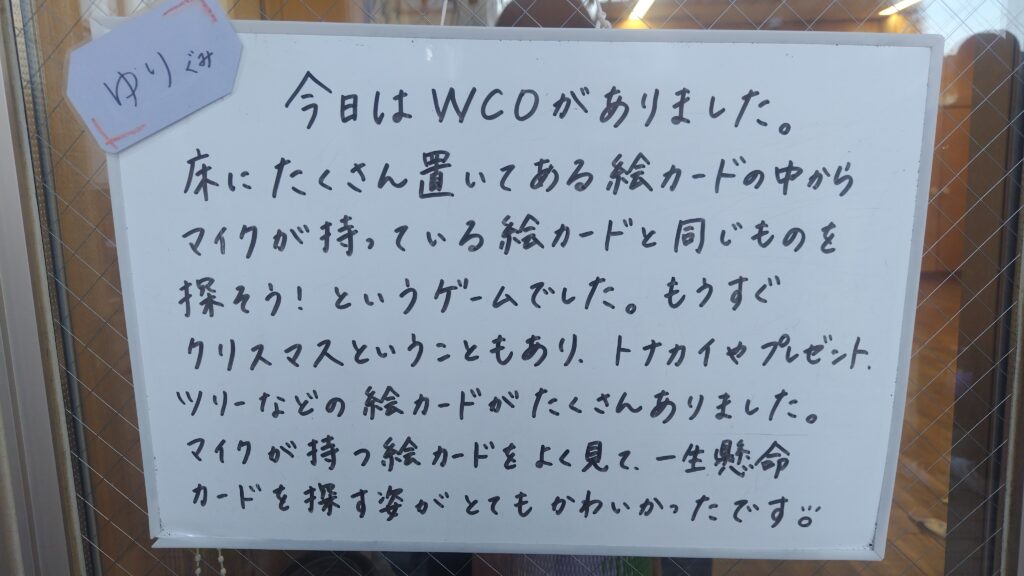 ゆりぐみ
今日はWCOがありました。
床にたくさん置いてある絵カードの中から
マイクが持っている絵カードと同じものを
探そう!というゲームでした。もうすぐ
クリスマスということもあり、トナカイやプレゼント、
ツリーなどの絵カードがたくさんありました。
マイクが持つ絵カードをよく見て、一生懸命
カードを探す姿がとてもかわいかったです。